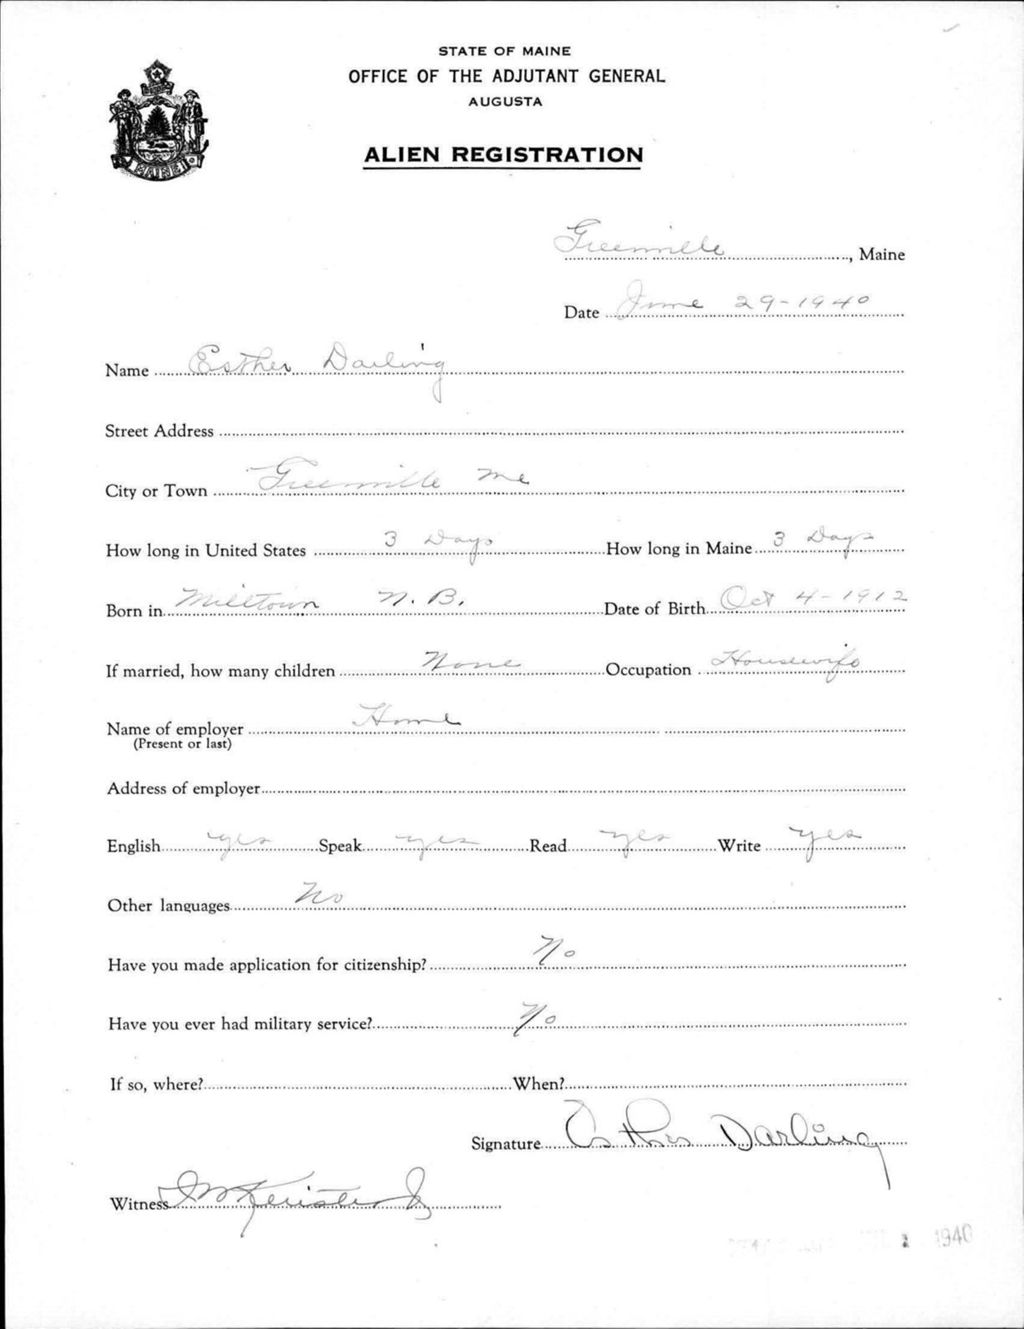 STATE OF MAINE
OFFICE OF THE ADJUTANT GENERAL
AUGUSTA
ALIEN REGISTRATION
MAINE
Greenville, Maine
Date June 29-1940
Name Esther Darling
Street Address
City or Town Greenville Me
How long in United States 3 Days How long in Maine 3 Days
Born in Milltown N.B. Date of Birth Oct 4-1912
If married, how many children None Occupation Housewife
Name of employer Home
(Present or last)
Address of employer
English yes Speak yes Read yes Write yes
Other languages No
Have you made application for citizenship? No
Have you ever had military service? No
If so, where? When?
Signature Esther Darling
Witness
1940